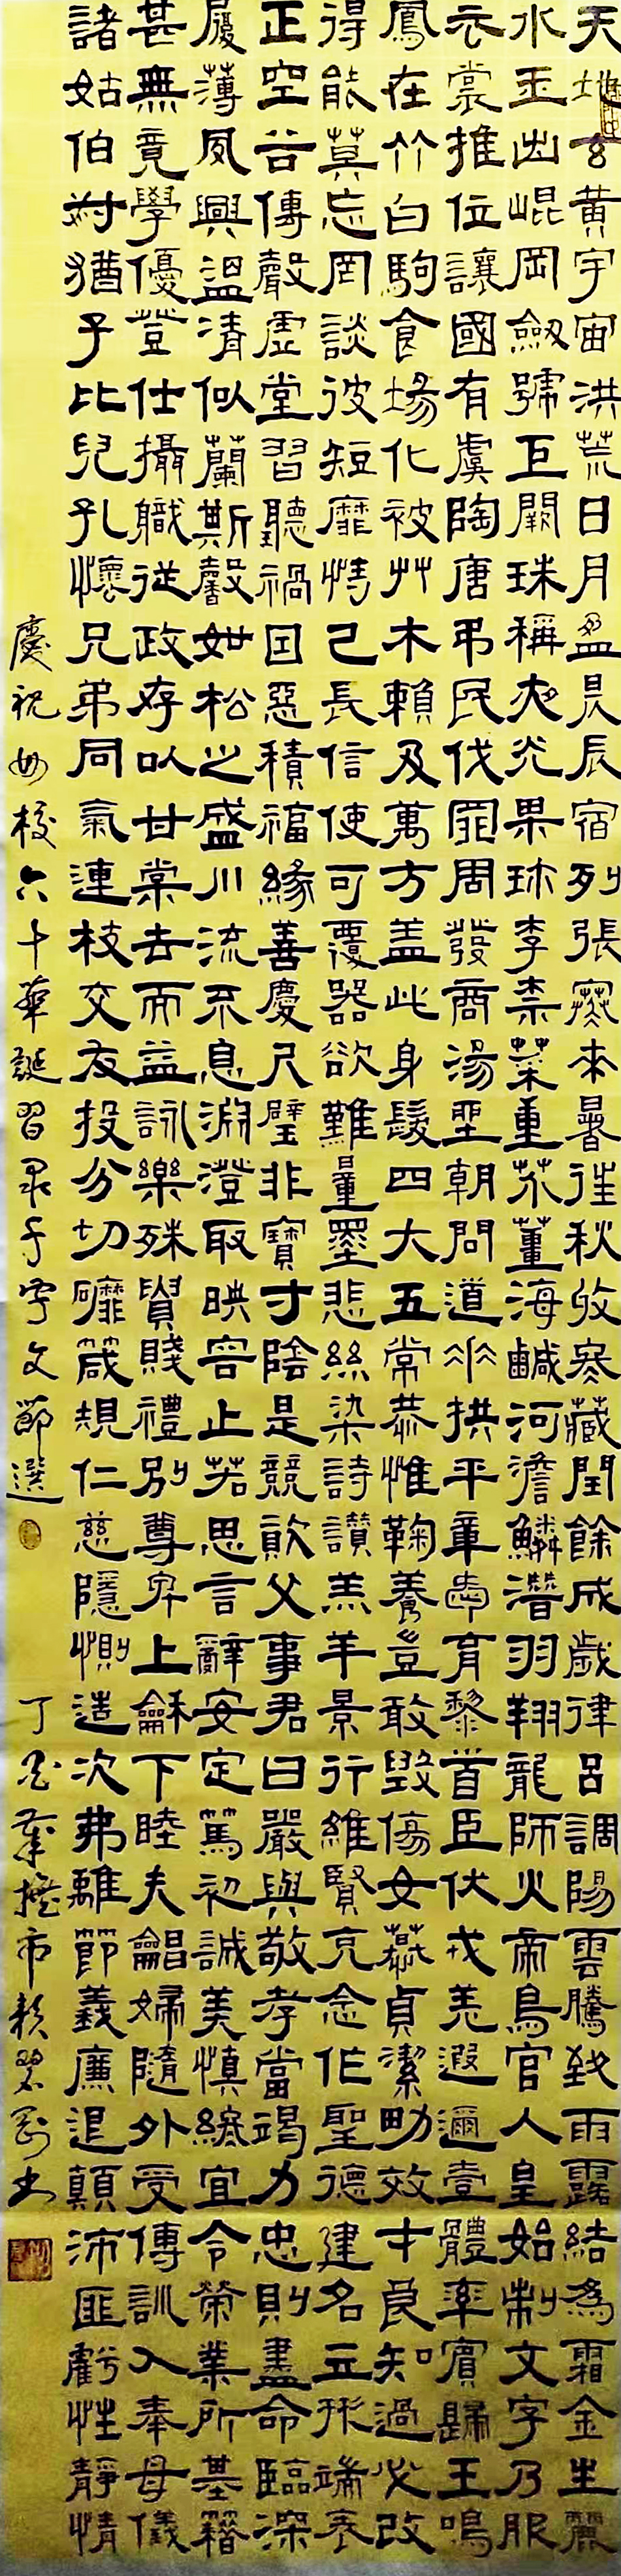 天地玄黃宇宙洪荒日月盈昃辰宿列張寒本暑往秋收冬藏閏餘成歲律呂調陽雲騰致雨露結為霜金生麗
水玉出崐岡劔號巨闕珠稱夜光果珍李柰菜重芥薑海鹹河澹鱗潛羽翔龍師火帝鳥官人皇始制文字乃服
衣裳推位讓國有虞陶唐弔民伐罪周發商湯坐朝問道垂拱平章愛育黎首臣伏戎羌遐邇壹體率賓歸王鳴
鳳在竹白駒食場化被艸木賴及萬方盖此身髮四大五常恭惟鞠養豈敢毀傷女慕貞潔男效才良知過必改
得能莫忘罔談彼短靡恃己長信使可覆器欲難量墨悲絲染詩讃羔羊景行維賢克念作聖德建名立形端表
正空谷傳聲虛堂習聽禍因惡積福緣善慶尺璧非寶寸陰是競資父事君曰嚴與敬孝當竭力忠則盡命臨深
履薄夙興溫清似蘭斯馨如松之盛川流不息淵澄取映容止若思言辭安定篤初誠美慎終宜令榮業所基籍
甚無竟學優登仕攝職從政存以甘棠去而益詠樂殊貴賤禮別尊卑上龢下睦夫唱婦隨外受傅訓入奉母儀
諸姑伯叔猶子比兒孔懷兄弟同氣連枝交友投分切磨箴規仁慈隱惻造次弗離節義廉退顛沛匪虧性靜情
慶祝母校六十華誕習录千字文節選